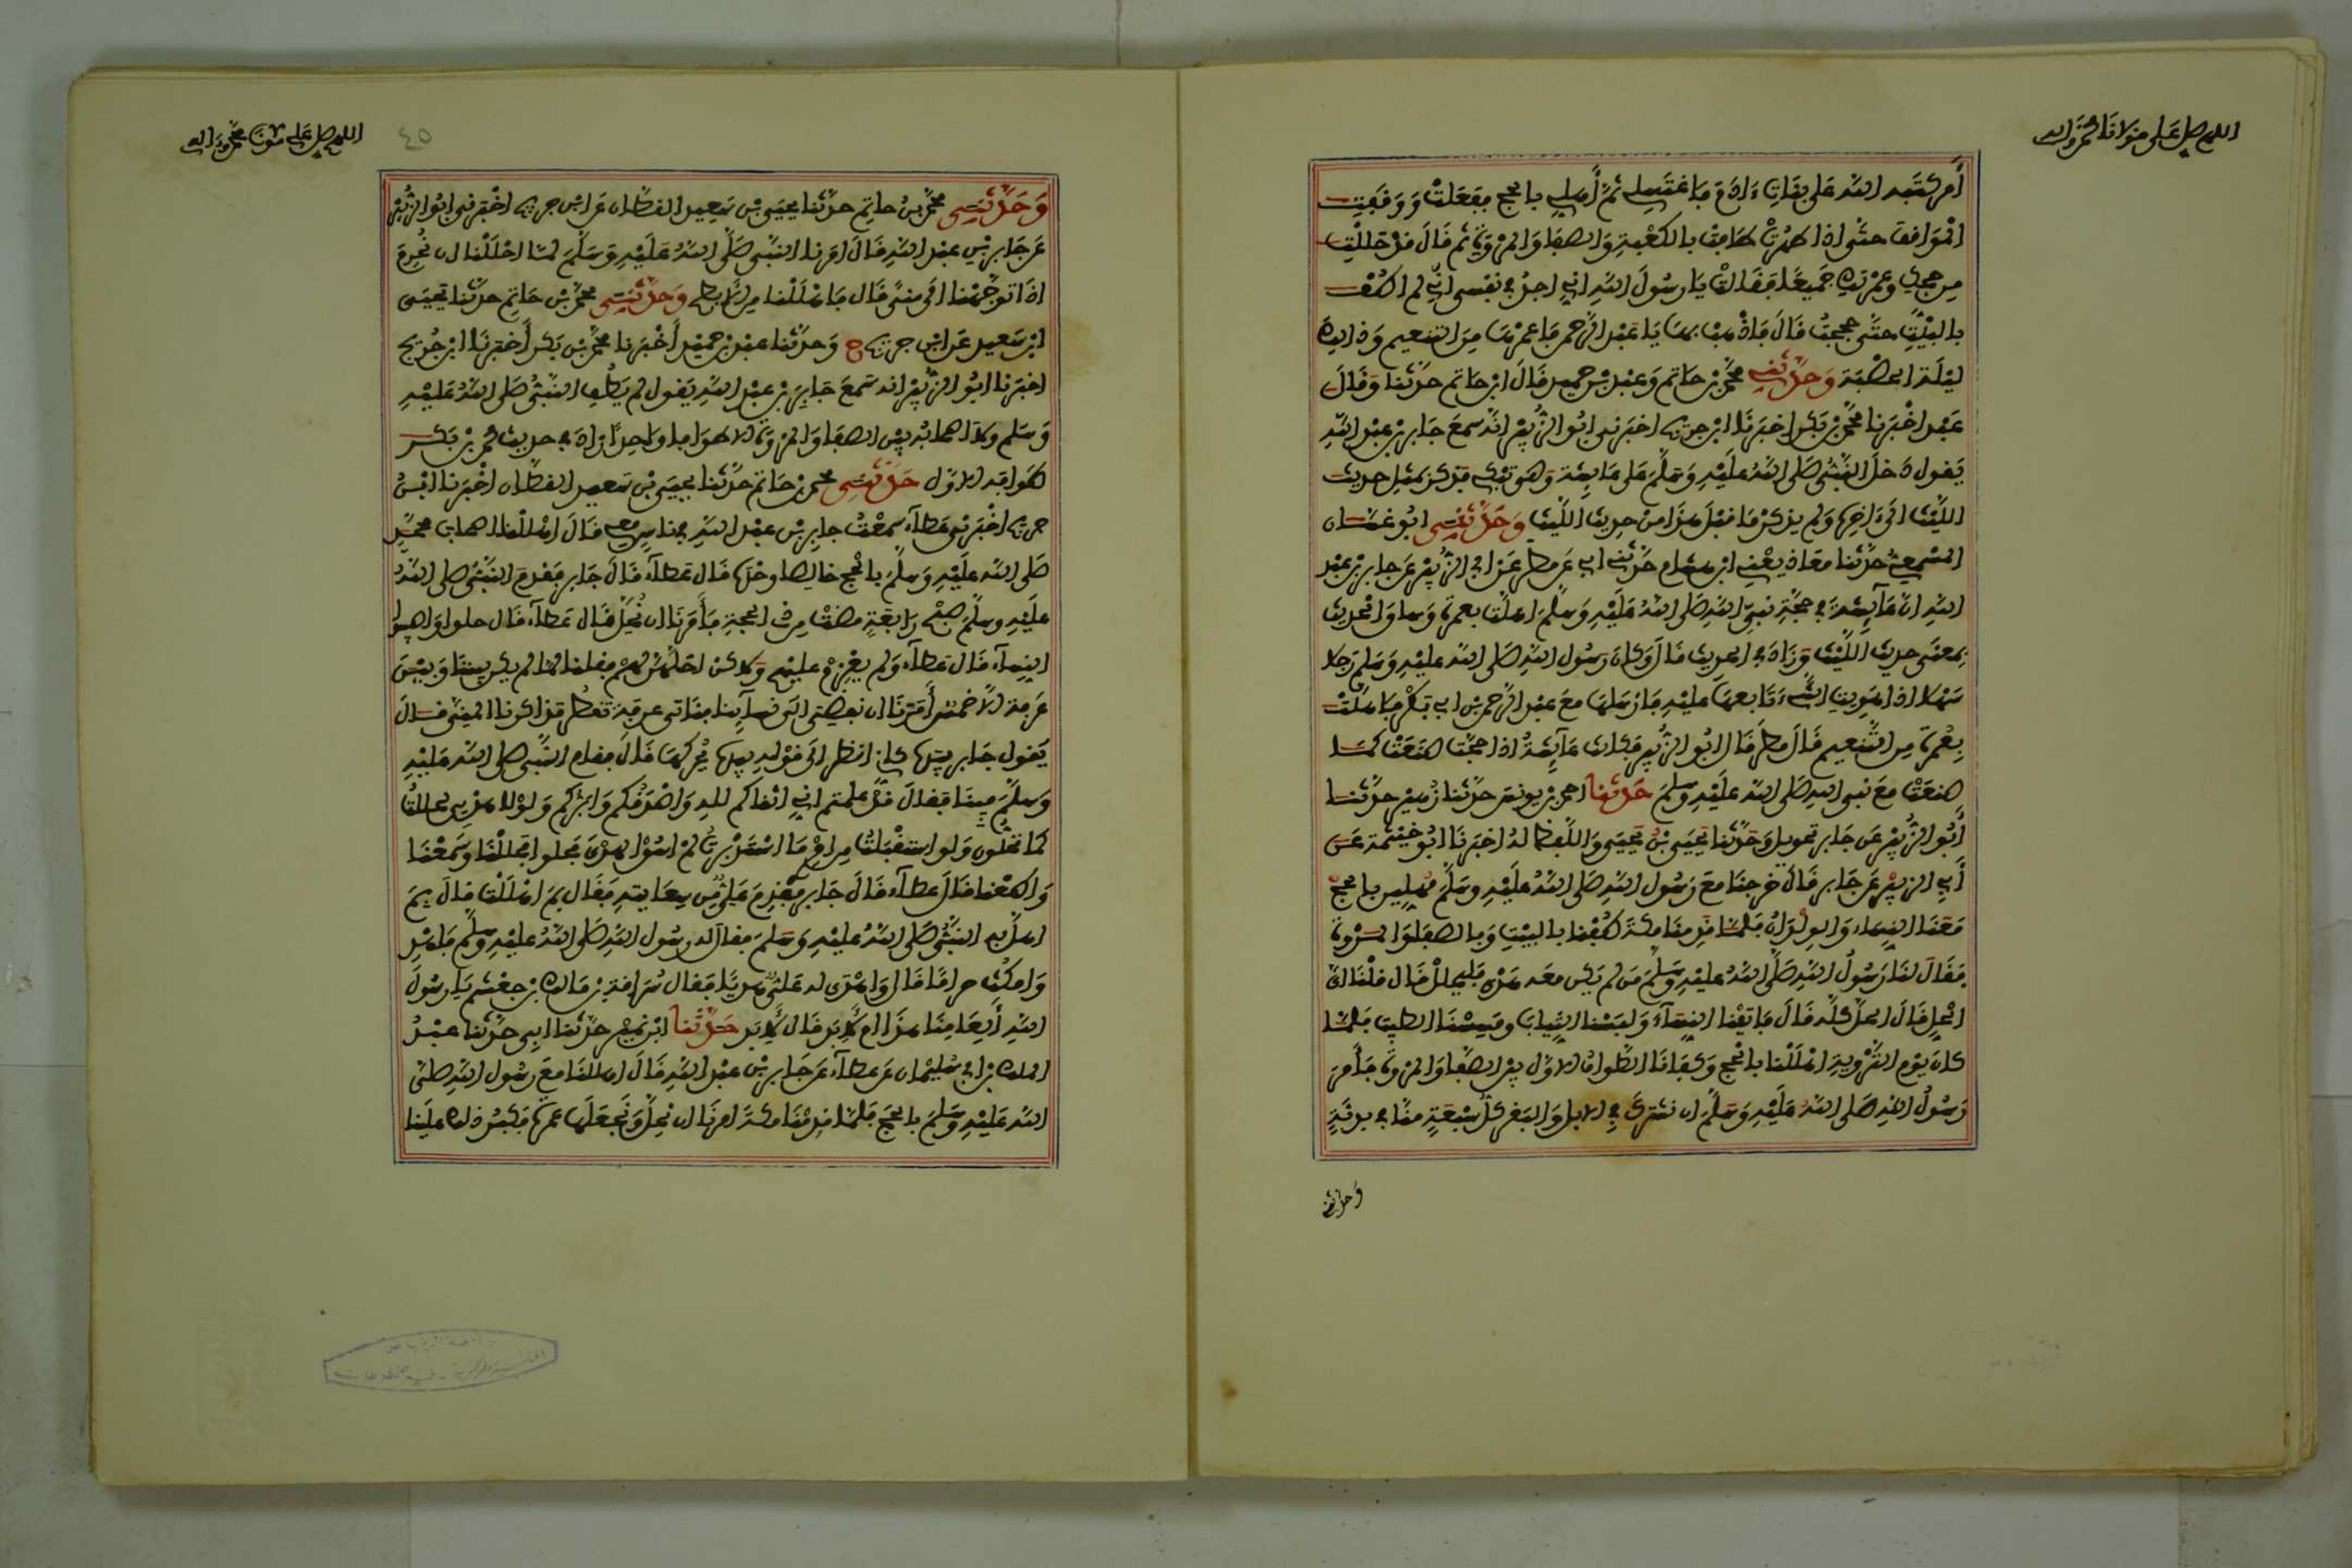 اللهم صل على مولانا محمد وآله
أمر كتبه الله على بنات ءادم فاغتسلي ثم أهلي بالحج ففعلت ووقفت
المواقف حتى إذا طهرت طافت بالكعبة والصفا والمروة ثم قال قد حللت
من حجك وعمرتك جميعا فقالت يا رسول الله إني أجد في نفسي أني لم أطف
بالبيت حتى حججت قال فاذهب بها يا عبد الرحمن فأعمرها من التنعيم وذلك
ليلة الحصبة وحدثني محمد بن حاتم وعبد بن حميد قال ابن حاتم حدثنا وقال
عبد أخبرنا محمد بن بكر أخبرنا ابن جريج أخبرني أبو الزبير أنه سمع جابر بن عبد الله
يقول دخل النبي صلى الله عليه وسلم على عائشة وهي تبكي فذكر بمثل حديث
الليث إلى ءاخره ولم يذكر ما قبل هذا من حديث الليث وحدثني أبو غسان
المسمعي حدثنا معاذ يعني ابن هشام حدثني أبي عن مطر عن أبي الزبير عن جابر بن عبد
الله أن عائشة في حجة نبي الله صلى الله عليه وسلم أهلت بعمرة وساق الحديث
بمعنى حديث الليث وزاد في الحديث قال وكان رسول الله صلى الله عليه وسلم رجلا
سهلا إذا هويت الشيء تابعها عليه فأرسلها مع عبد الرحمن بن أبي بكر فأهلت
بعمرة من التنعيم قال مطر قال أبو الزبير فكانت عائشة إذا حجت صنعت كما
صنعت مع نبي الله صلى الله عليه وسلم حدثنا أحمد بن يونس حدثنا زهير حدثنا
أبو الزبير عن جابر تحويل وحدثنا يحيى بن يحيى واللفظ له أخبرنا أبو خيثمة عن
أبي الزبير عن جابر قال خرجنا مع رسول الله صلى الله عليه وسلم مهلين بالحج
معنا النساء والولدان فلما قدمنا مكة طفنا بالبيت وبالصفا والمروة
فقال لنا رسول الله صلى الله عليه وسلم من لم يكن معه هدي فليحلل قال قلنا أي
الحل قال الحل كله قال فأتينا النساء ولبسنا الثياب ومسسنا الطيب فلما
كان يوم التروية أهللنا بالحج وكفانا الطواف الأول بين الصفا والمروة فأمر
رسول الله صلى الله عليه وسلم أن نشترك في الإبل والبقر كل سبعة منا في بدنة
وحدثني
اللهم صل على محمد وآله
٤٥
وحدثني محمد بن حاتم حدثنا يحيى بن سعيد القطان عن ابن جريج أخبرني أبو الزبير
عن جابر بن عبد الله قال أمرنا النبي صلى الله عليه وسلم لما أحللنا أن نحرم
إذا توجهنا إلى منى قال فأهللنا من الأبطح وحدثني محمد بن حاتم حدثنا يحيى
ابن سعيد عن ابن جريج ح وحدثنا عبد بن حميد أخبرنا محمد بن بكر أخبرنا ابن جريج
أخبرنا أبو الزبير أنه سمع جابر بن عبد الله يقول لم يطف النبي صلى الله عليه
وسلم ولا أصحابه بين الصفا والمروة إلا طوافا واحدا زاد في حديث محمد بن بكر
طوافه الأول حدثني محمد بن حاتم حدثنا يحيى بن سعيد القطان أخبرنا ابن
جريج أخبرني عطاء سمعت جابر بن عبد الله في ناس معي قال أهللنا أصحاب محمد
صلى الله عليه وسلم بالحج خالصا وحده قال عطاء قال جابر فقدم النبي صلى الله
عليه وسلم صبح رابعة مضت من ذي الحجة فأمرنا أن نحل قال عطاء قال حلوا وأصيبوا
النساء قال عطاء ولم يعزم عليهم ولكن أحلهن لهم فقلنا لما لم يكن بيننا وبين
عرفة إلا خمس أمرنا أن نفضي إلى نسائنا فنأتي عرفة تقطر مذاكرنا المني قال
يقول جابر بيده كأني أنظر إلى قوله بيده يحركها قال فقام النبي صلى الله عليه
وسلم فينا فقال قد علمتم أني أتقاكم لله وأصدقكم وأبركم ولولا هديي لحللت
كما تحلون ولو استقبلت من أمري ما استدبرت لم أسق الهدي فحلوا فحللنا وسمعنا
وأطعنا قال عطاء قال جابر فقدم علي من سعايته فقال بم أهللت قال بم
أهل به النبي صلى الله عليه وسلم فقال له رسول الله صلى الله عليه وسلم فأهد
وامكث حراما قال وأهدى له علي هديا فقال سراقة بن مالك بن جعشم يا رسول
الله ألعامنا هذا أم لأبد قال لأبد حدثنا ابن نمير حدثنا أبي حدثنا عبد
الملك بن أبي سليمان عن عطاء عن جابر بن عبد الله قال أهللنا مع رسول الله صلى
الله عليه وسلم بالحج فلما قدمنا مكة أمرنا أن نحل ونجعلها عمرة فكبر ذلك علينا